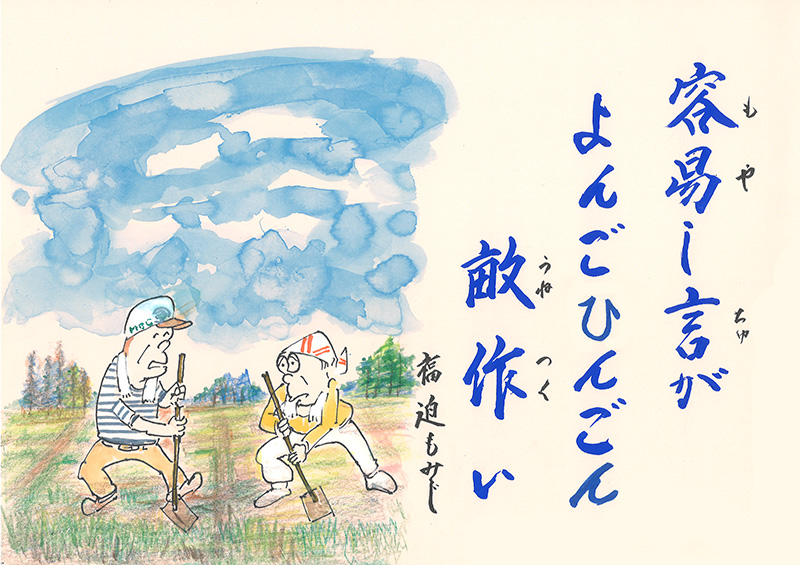 容易し言が
もや
ちゅ
よんごひんごん
畝作い
うね
つく
福迫もみじ
MBC